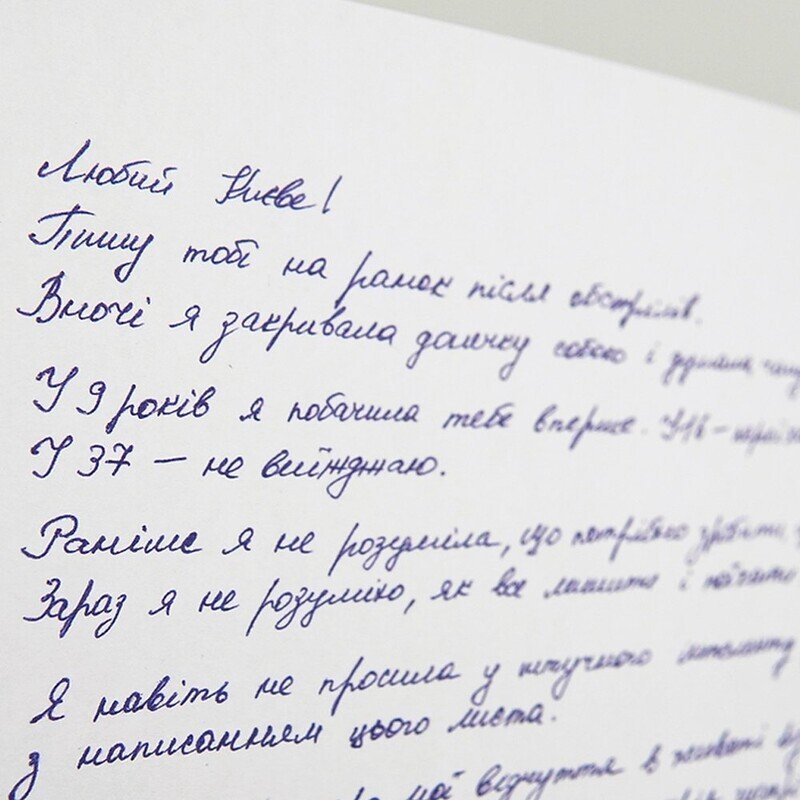 Любий Києве!
Пишу тобі на ранок після обстрілів.
Вночі я закривала донечку собою і думала,
У 9 років я побачила тебе вперше. У 16 –
У 37 – не виїжджаю.
Раніше я не розуміла, що потрібно зробити,
Зараз я не розумію, як все лишити і почати
Я навіть не просила у штучного інтелекту
з написанням цього листа.
мої відчуття в